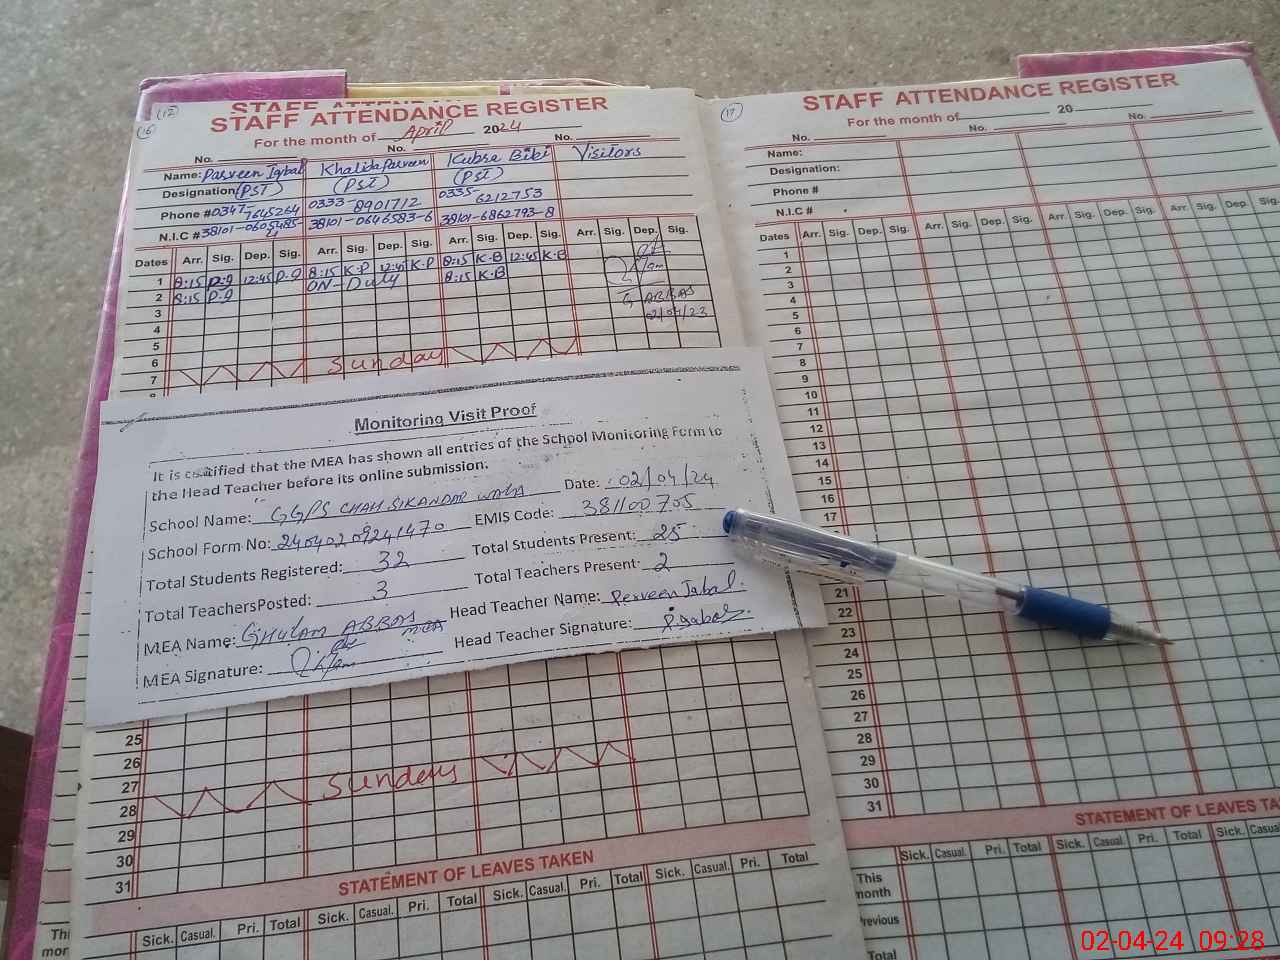 (12)
STAFF ATTENDANCE REGISTER
(16)
STAFF ATTENDANCE REGISTER
For the month of April 2024
No. No. No.
Name: Parveen Iqbal Khalida Parveen Kubra Bibi Visitors
Designation (PST) (PST) (PST)
Phone # 0347-7645264 0333-8901712 0335-6212753
N.I.C # 38101-0646583-6 38101-6862793-8
Dates Arr. Sig. Dep. Sig. Arr. Sig. Dep. Sig. Arr. Sig. Dep. Sig. Arr. Sig. Dep. Sig.
1 8:15 P.I 12:45 P.I 8:15 K.P 12:45 K.P 8:15 K.B 12:45 K.B
2 8:15 P.I ON-Duty 8:15 K.B
3 G ABBAS
4 02/04/23
5
6
7 Sunday
8
Monitoring Visit Proof
It is certified that the MEA has shown all entries of the School Monitoring Form to
the Head Teacher before its online submission.
School Name: GGPS CHAH SIKANDAR WALA Date: 02/04/24
School Form No: 24040209241470 EMIS Code: 381100705
Total Students Registered: 32 Total Students Present: 25
Total TeachersPosted: 3 Total Teachers Present: 2
MEA Name: GHULAM ABBAS MEA Head Teacher Name: Perveen Iqbal.
MEA Signature: Head Teacher Signature: P.Iqbal
25
26
27
28 Sunday
29
30
31
STATEMENT OF LEAVES TAKEN
Sick. Casual. Pri. Total Sick. Casual. Pri. Total Sick. Casual. Pri. Total Sick. Casual. Pri. Total
(17)
STAFF ATTENDANCE REGISTER
For the month of 20
No. No. No.
Name:
Designation:
Phone #
N.I.C #
Dates Arr. Sig. Dep. Sig. Arr. Sig. Dep. Sig. Arr. Sig. Dep. Sig. Arr. Sig.
1
2
3
4
5
6
7
8
9
10
11
12
13
14
15
16
17
21
22
23
24
25
26
27
28
29
30
31
STATEMENT OF LEAVES TA
Sick. Casual. Pri. Total Sick. Casual. Pri. Total Sick. Casual.
This
month
Previous
Total
02-04-24 09:28